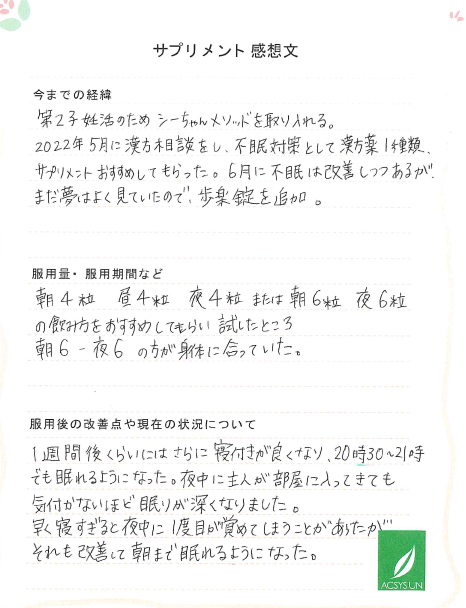 サプリメント 感想文
今までの経緯
第2子妊活のため シーちゃんメソッドを取り入れる。
2022年5月に漢方相談をし、不眠対策として漢方薬1種類、
サプリメントおすすめしてもらった。6月に不眠は改善しつつあるが、
まだ夢はよく見ていたので、歩楽錠を追加。
服用量・服用期間など
朝4粒 昼4粒 夜4粒 または 朝6粒 夜6粒
の飲み方をおすすめしてもらい 試したところ
朝6-夜6 の方が身体に合っていた。
服用後の改善点や現在の状況について
1週間後くらいにはさらに寝付きが良くなり、20時30~21時
でも眠れるようになった。夜中に主人が部屋に入ってきても
気付かないほど眠りが深くなりました。
早く寝すぎると夜中に1度目が覚めてしまうことがあったが
それも改善して朝まで眠れるようになった。
ACSYSUN